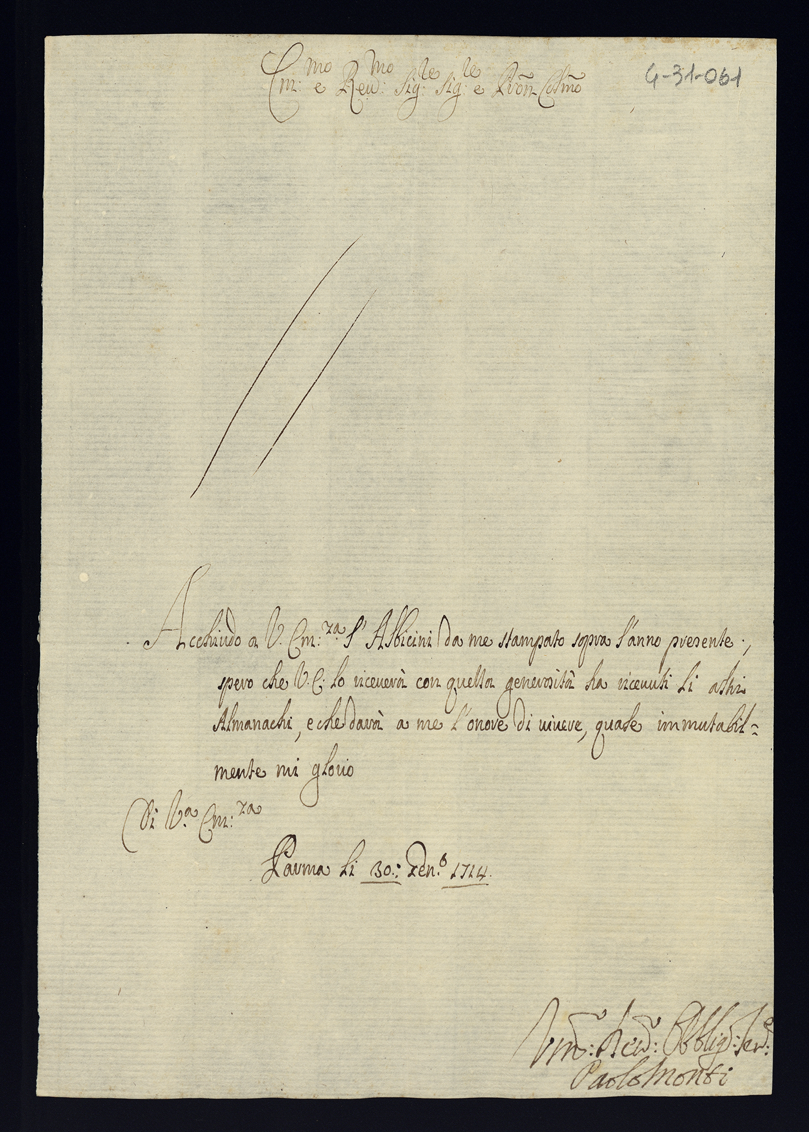 Em:mo e Reu:mo Sig:re Sig:re e Pron Colmo
4-31-061
Acchiudo a V. Em:za l'Albicini da me stampato sopra l'anno presente.,
spero che V. E: lo riceverà con quella generosità ha ricevuti li altri
Almanachi, e che darà a me l'onore di vivere, quale immutabil=
mente mi glorio
Di V.a Em:za
Parma li 30: Xen.o 1714.
Um: Deu: Obblig: Ser:
Paolo Monti